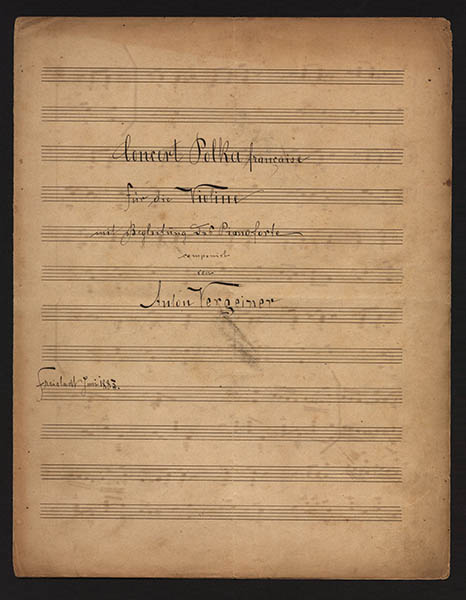 Concert Polka française
für die Violine
mit Begleitung des Pianoforte
componirt
von
Anton Vergeiner
Freistadt Juni 1883.